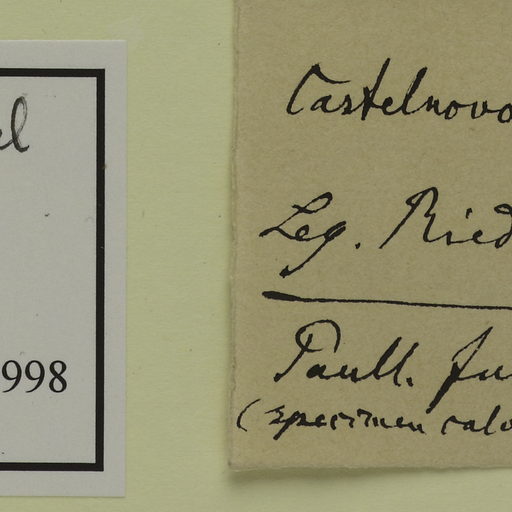 998
Castelnovo
Leg. Ried
Paull. fu
(specimen calo